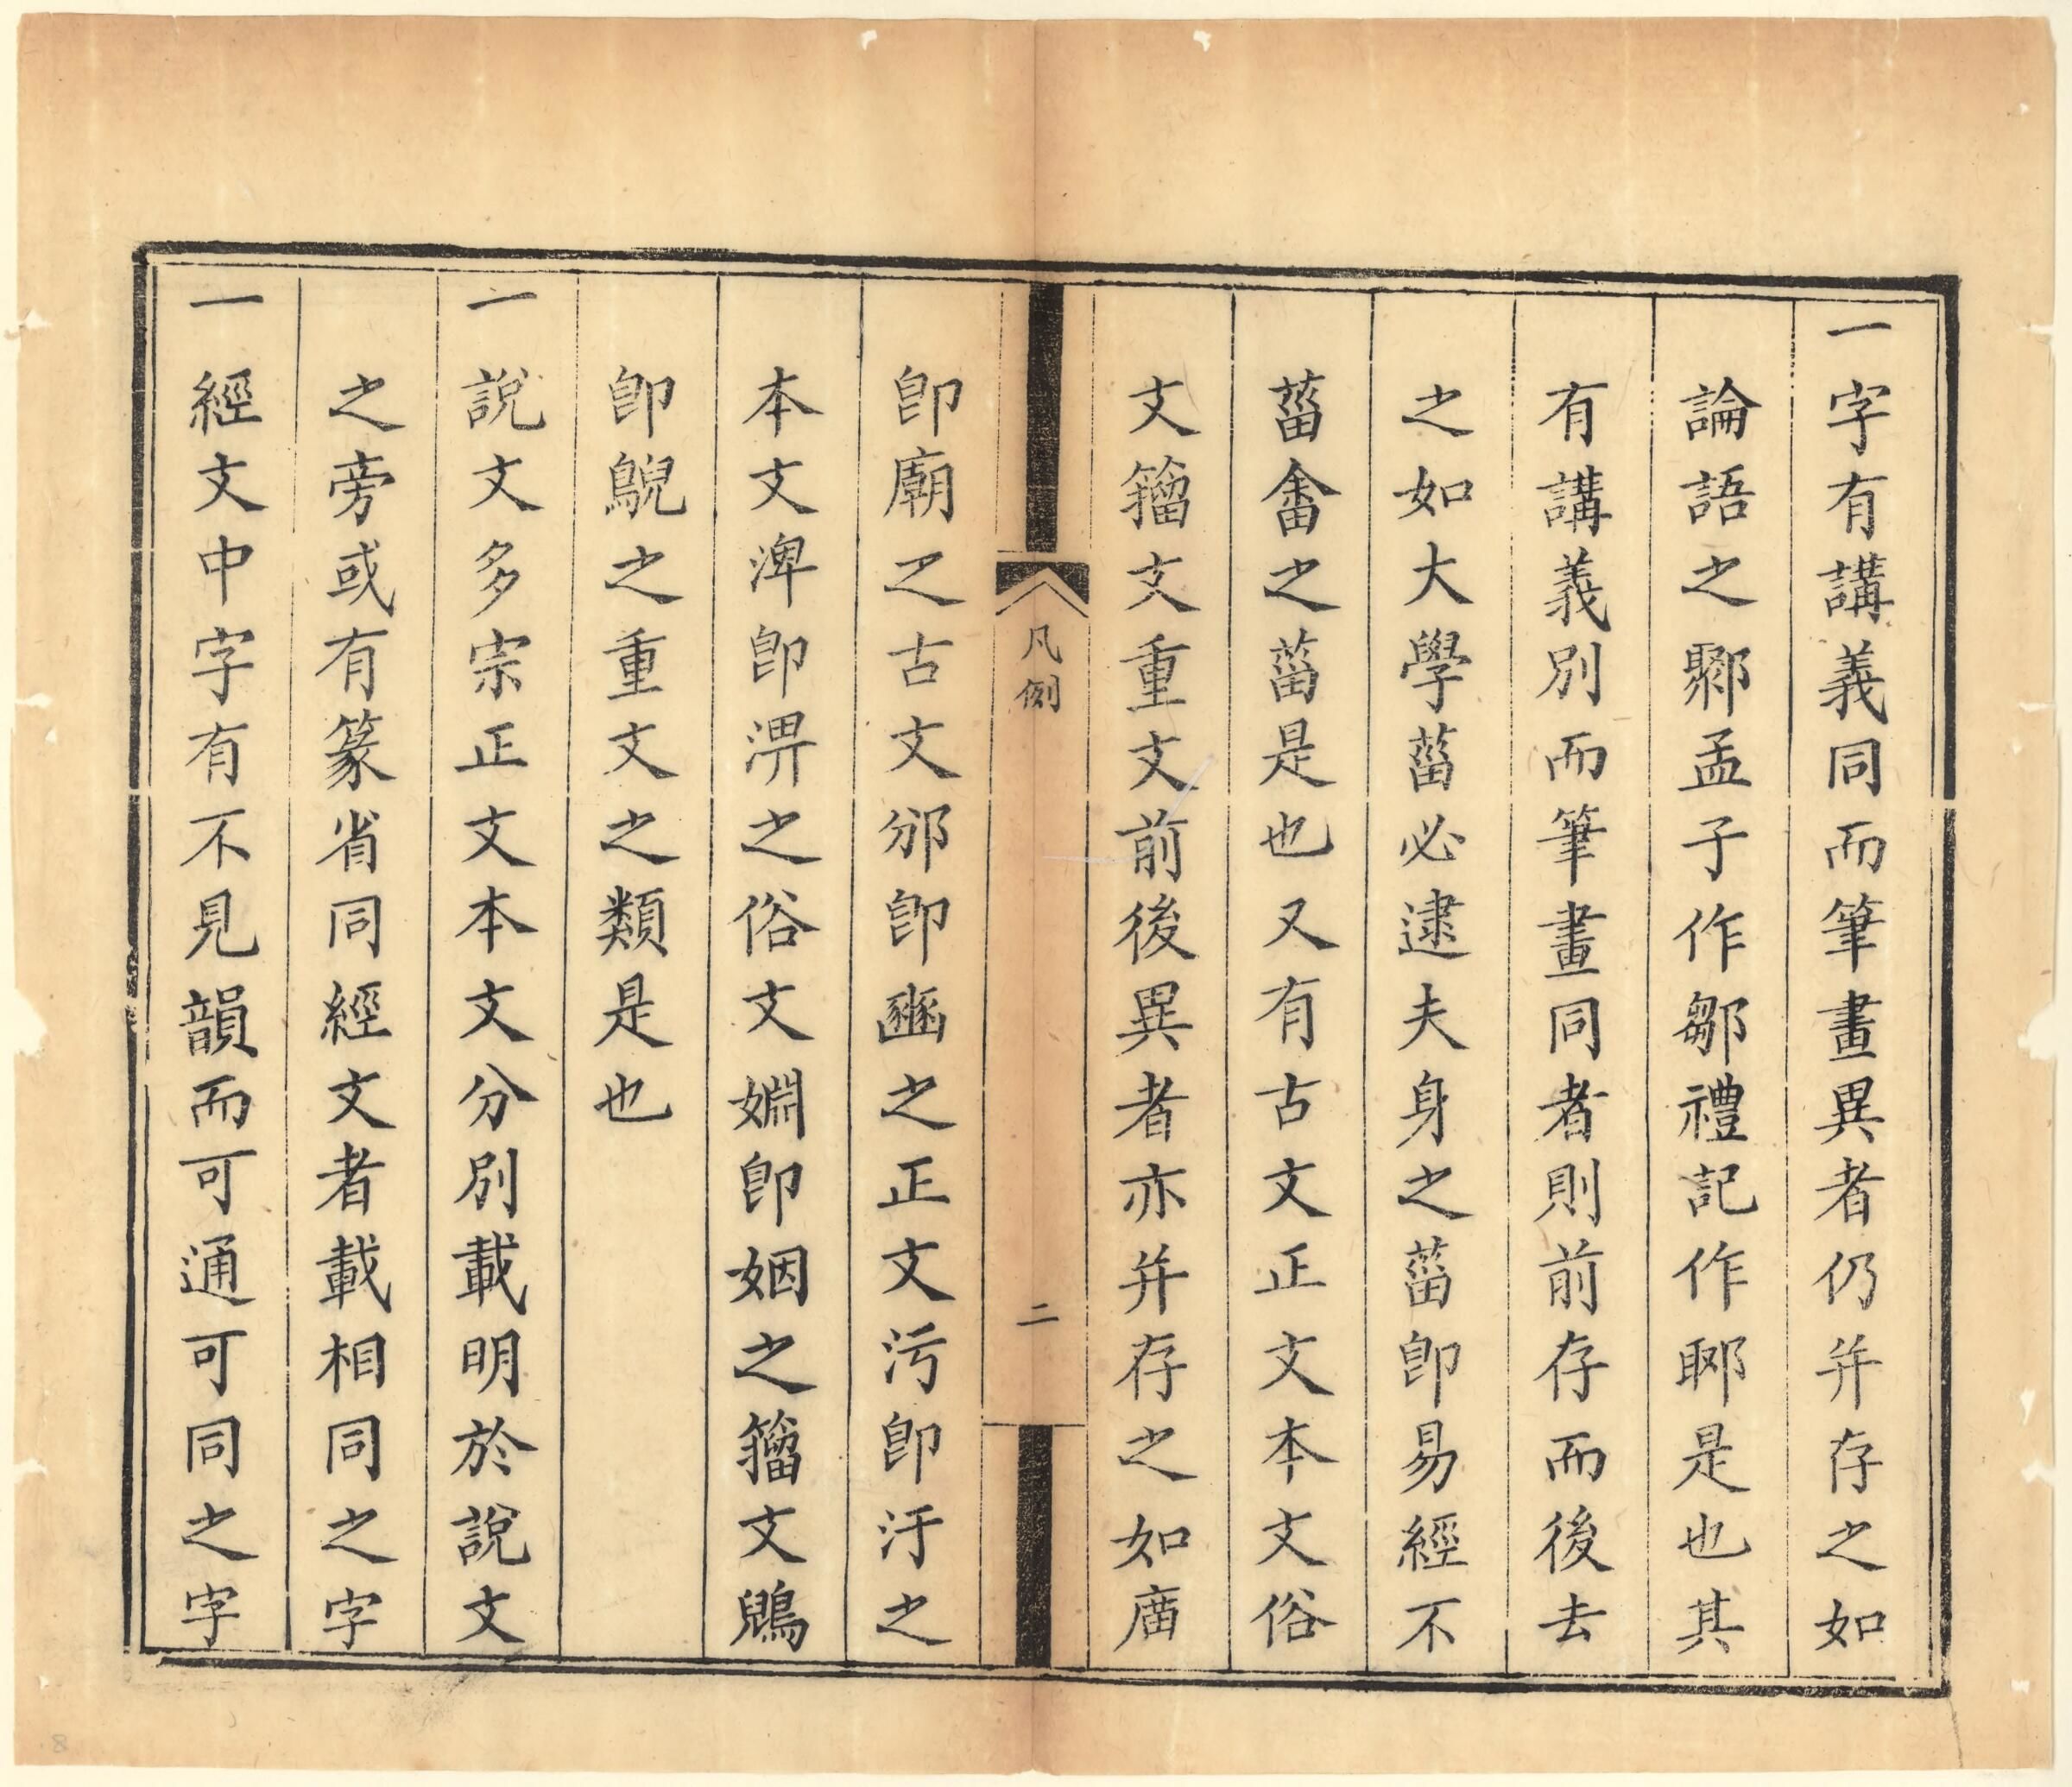 一字有講義同而筆畫異者仍并存之如
論語之鄹孟子作鄒禮記作郰是也其
有講義別而筆畫同者則前存而後去
之如大學菑必逮夫身之菑卽易經不
菑畬之菑是也又有古文正文本文俗
文籀文重文前後異者亦并存之如庿
卽廟之古文邠卽豳之正文污卽汙之
本文渒卽淠之俗文婣卽姻之籀文鶂
卽鶃之重文之類是也
一說文多宗正文本文分別載明於說文
之旁或有篆省同經文者載相同之字
一經文中字有不見韻而可通可同之字
凡例
二